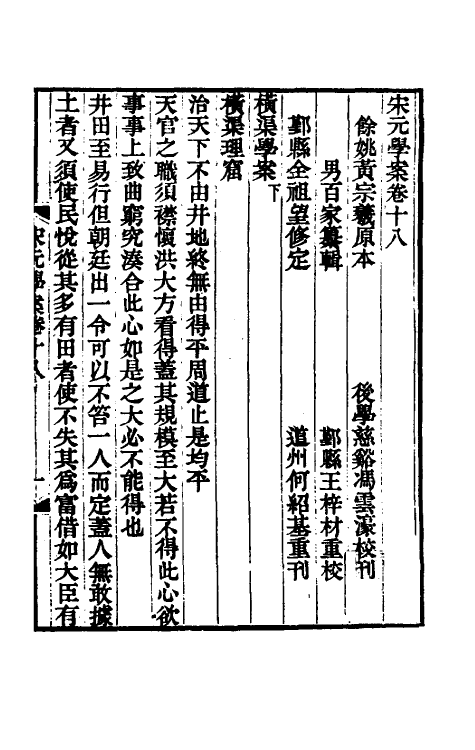 宋元學案卷十八
餘姚黃宗羲原本　後學慈谿馮雲濠校刊
男百家纂輯　鄞縣王梓材重校
鄞縣全祖望修定　道州何紹基重刊
橫渠學案下
橫渠理窟
治天下不由井地終無由得平周道止是均平
天官之職須襟懷洪大方看得蓋其規模至大若不得此心欲
事事上致曲窮究湊合此心如是之大必不能得也
井田至易行但朝廷出一令可以不笞一人而定蓋人無敢據
土者又須使民悅從其多有田者使不失其爲富借如大臣有
宋元學案卷十八　一